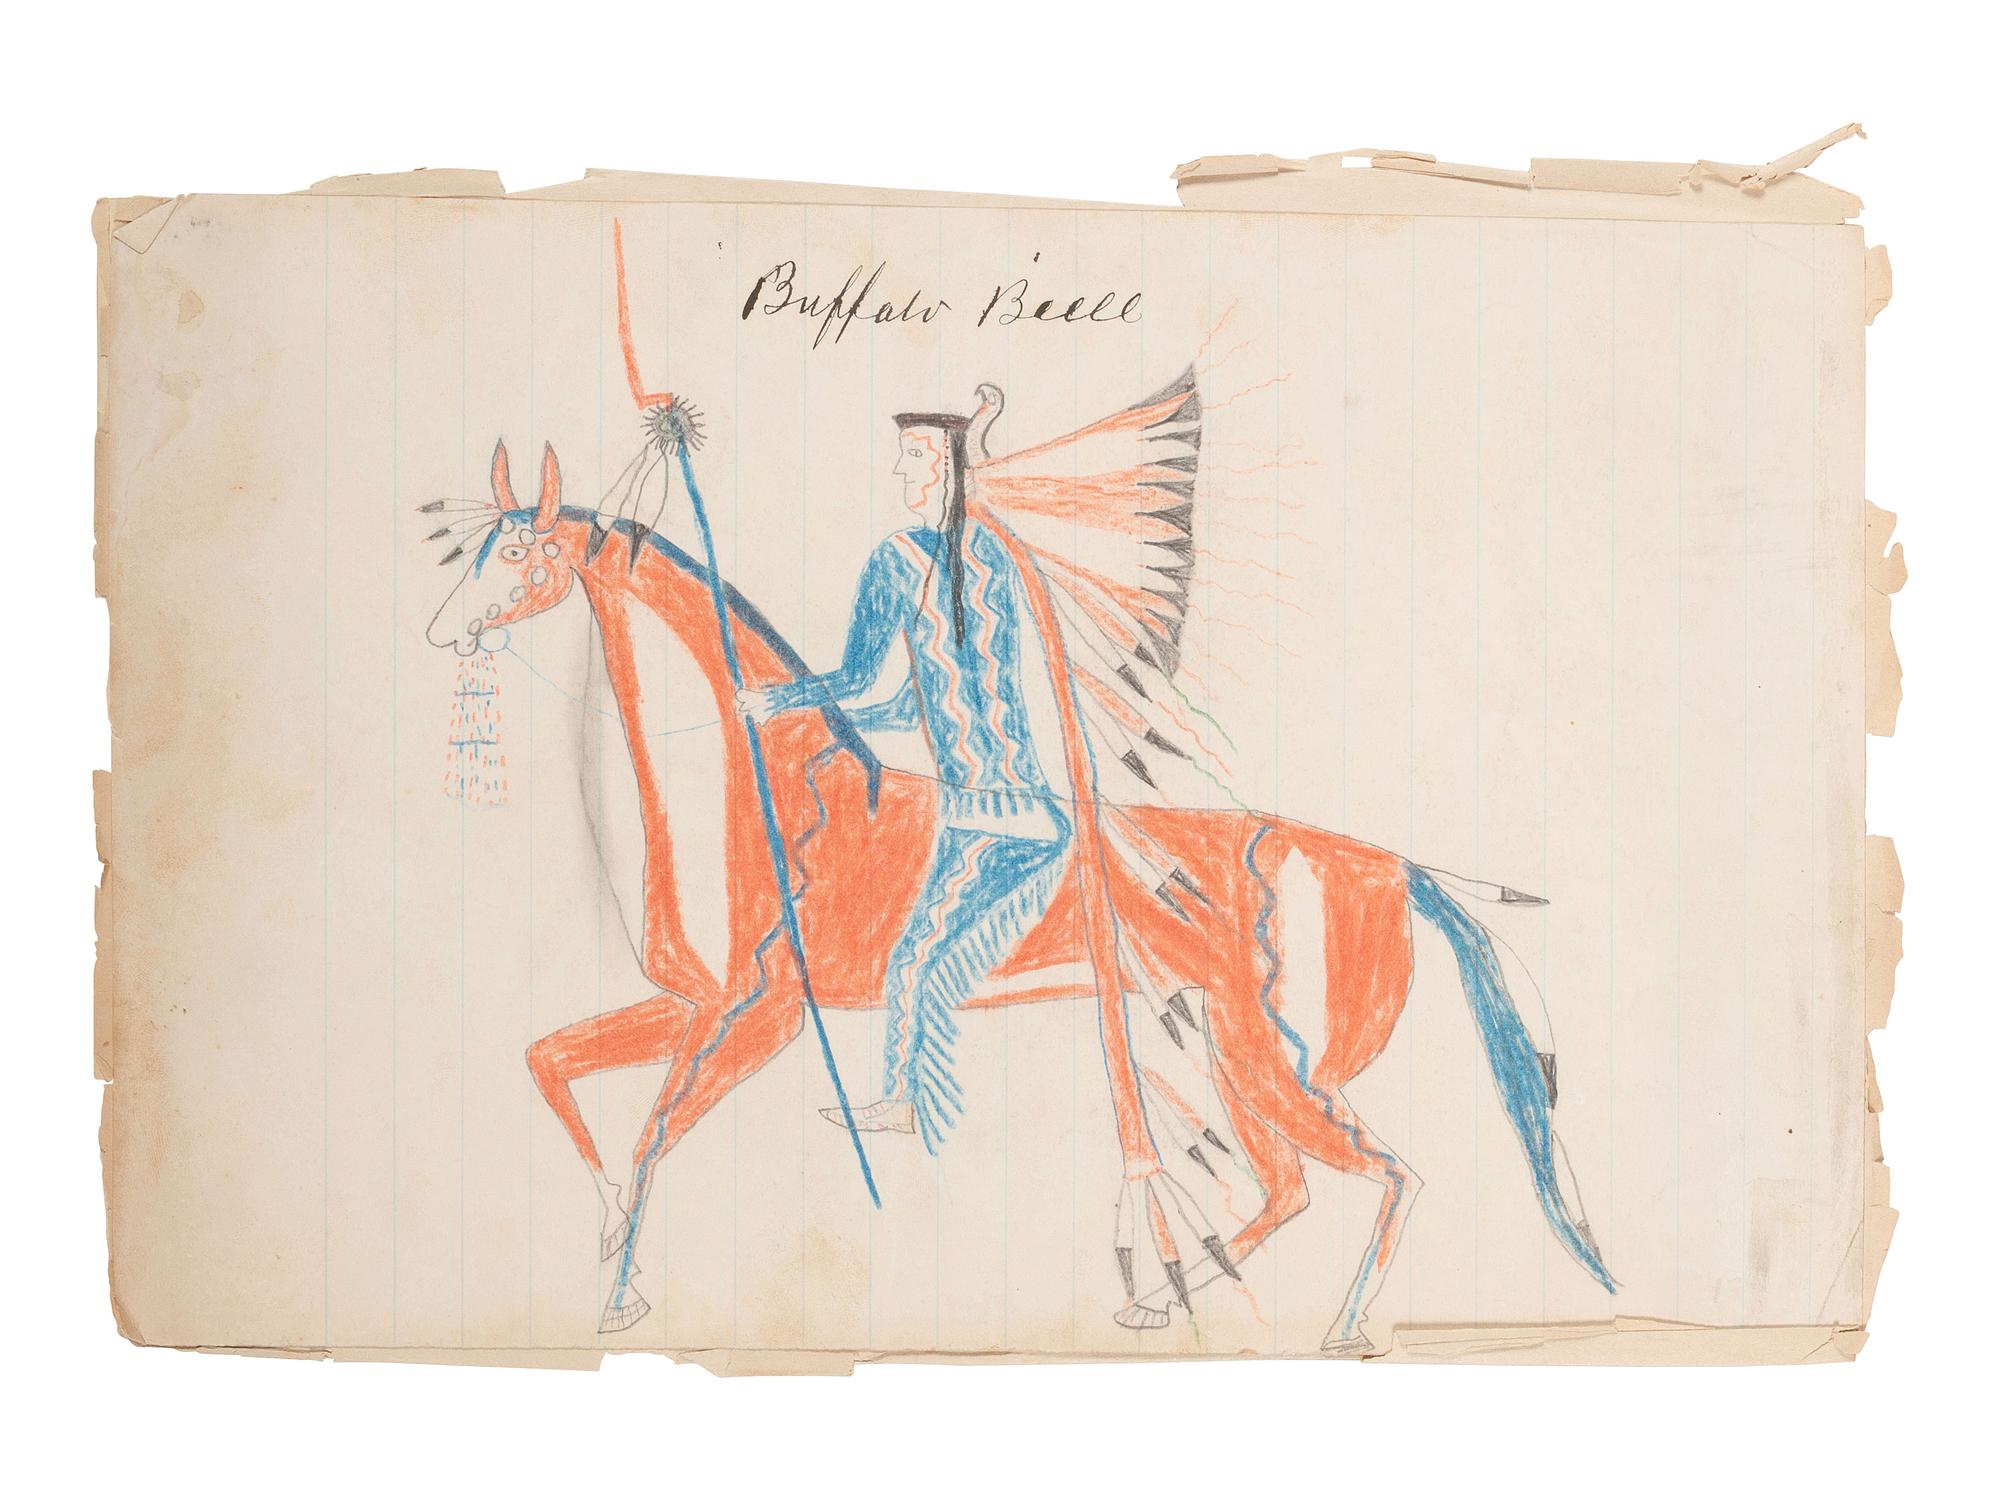 Buffalo Beell